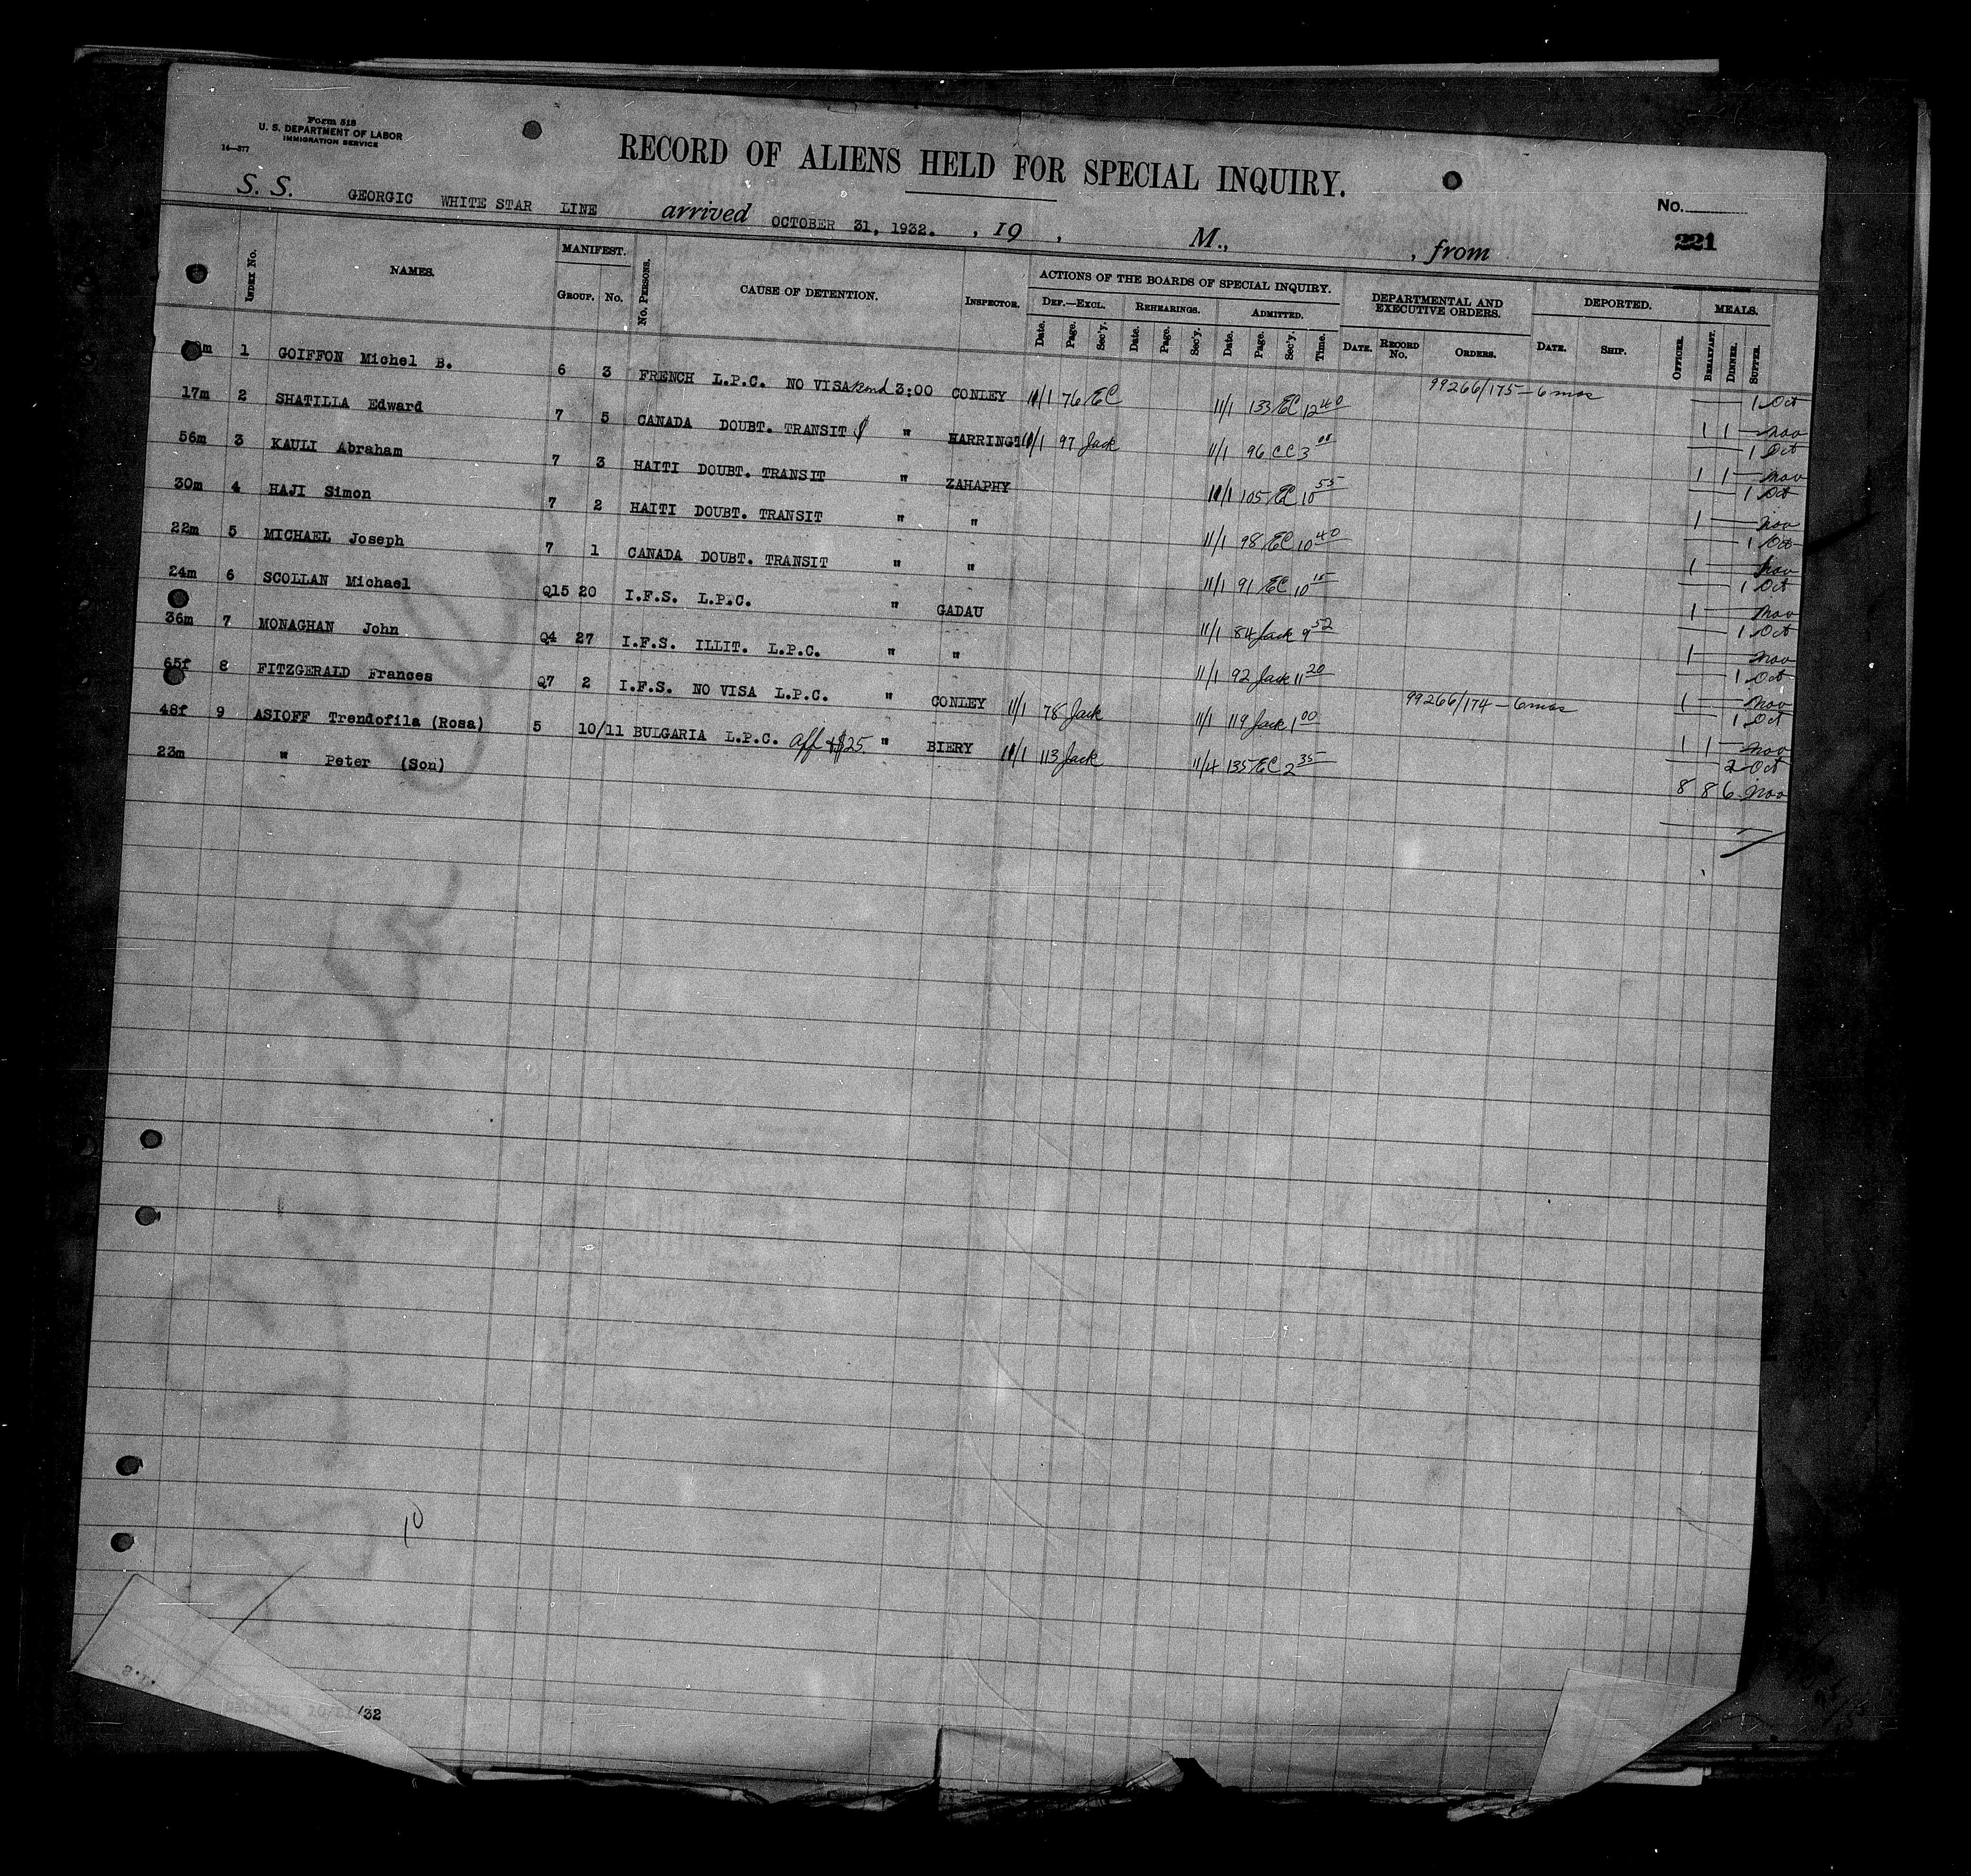 Form 518
U. S. DEPARTMENT OF LABOR
IMMIGRATION SERVICE
14—377
RECORD OF ALIENS HELD FOR SPECIAL INQUIRY.
No.
S. S. GEORGIC WHITE STAR LINE arrived OCTOBER 31, 1932. , 19 , M., , from 221
INDEX No. NAMES. MANIFEST. GROUP. No. No. PERSONS. CAUSE OF DETENTION. INSPECTOR. ACTIONS OF THE BOARDS OF SPECIAL INQUIRY. DEPARTMENTAL AND EXECUTIVE ORDERS. DEPORTED. MEALS.
DEF.—EXCL. REHEARINGS. ADMITTED.
Date. Page. Sec'y. Date. Page. Sec'y. Date. Page. Sec'y. Time. DATE. RECORD No. ORDERS. DATE. SHIP. OFFICER. BREAKFAST. DINNER. SUPPER.
m 1 GOIFFON Michel B. 6 3 FRENCH L.P.C. NO VISA 3:00 CONLEY 11/1 76 EC 11/1 133 EC 12 40 99266/175—6 mos 1 Oct
1 1 — Nov
17m 2 SHATILLA Edward 7 5 CANADA DOUBT. TRANSIT " HARRINGT 11/1 97 Jack 11/1 96 CC 3 00 1 Oct
1 1 — Nov
56m 3 KAULI Abraham 7 3 HAITI DOUBT. TRANSIT " ZAHAPHY 11/1 105 EC 10 55 1 Oct
1 — Nov
30m 4 HAJI Simon 7 2 HAITI DOUBT. TRANSIT " " 11/1 98 EC 10 40 1 Oct
1 — Nov
22m 5 MICHAEL Joseph 7 1 CANADA DOUBT. TRANSIT " " 11/1 91 EC 10 15 1 Oct
1 — Nov
24m 6 SCOLLAN Michael Q15 20 I.F.S. L.P.C. " GADAU 11/1 84 Jack 9 52 1 Oct
1 — Nov
36m 7 MONAGHAN John Q4 27 I.F.S. ILLIT. L.P.C. " " 11/1 92 Jack 11 20 1 Oct
1 — Nov
65f 8 FITZGERALD Frances Q7 2 I.F.S. NO VISA L.P.C. " CONLEY 11/1 78 Jack 11/1 119 Jack 1 00 99266/174—6 mos 1 Oct
1 1 — Nov
48f 9 ASIOFF Trendofila (Rosa) 5 10/11 BULGARIA L.P.C. aff + $25 " BIERY 11/1 113 Jack 11/4 135 EC 2 35 2 Oct
23m " Peter (Son) 8 8 6 Nov
10
/32